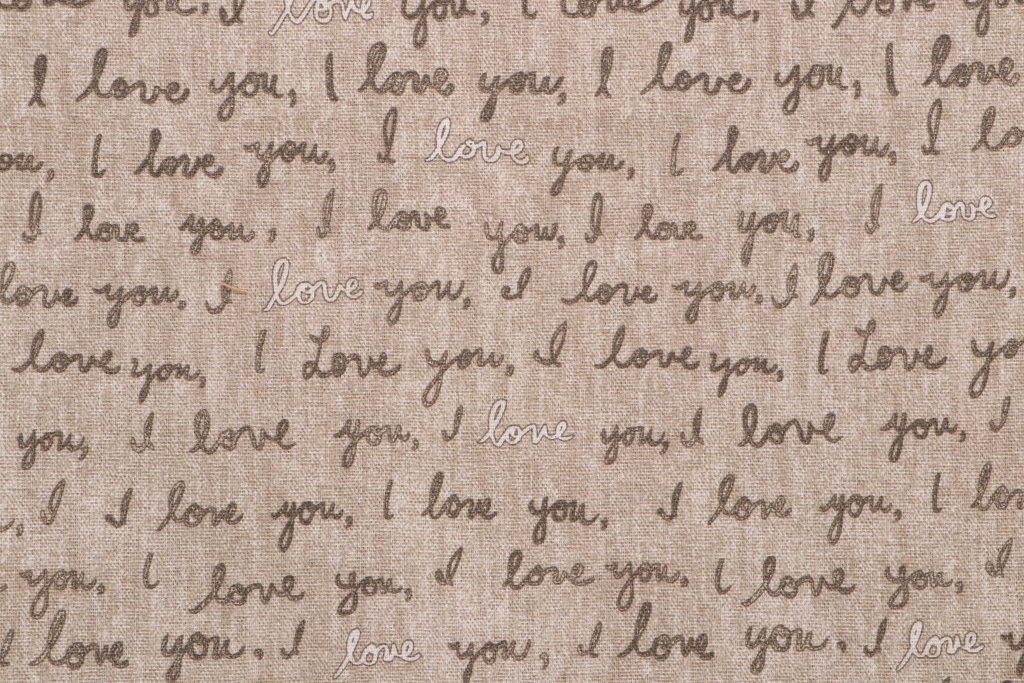 love you, I love you, I love you, I love you
I love you, I love you, I love you, I love
you, I love you, I love you, I love you, I lo
I love you, I love you, I love you, I love
love you, I love you, I love you. I love you,
love you, I Love you, I love you, I Love yo
you, I love you, I love you, I love you, I
, I I love you, I love you, I love you, I lov
you, I love you, I love you. I love you, I
I love you. I love you, I love you. I love y